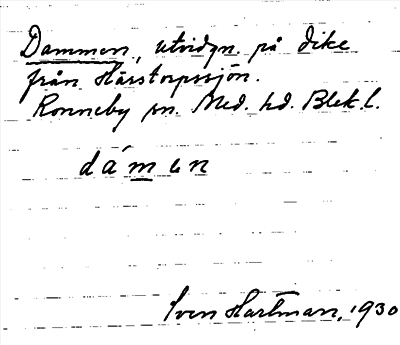 Dammen, utvidgn. på dike
från Hårstorpssjön.
Ronneby sn. Med. hd. Blek. l.
dámen
Sven Hartman, 1930